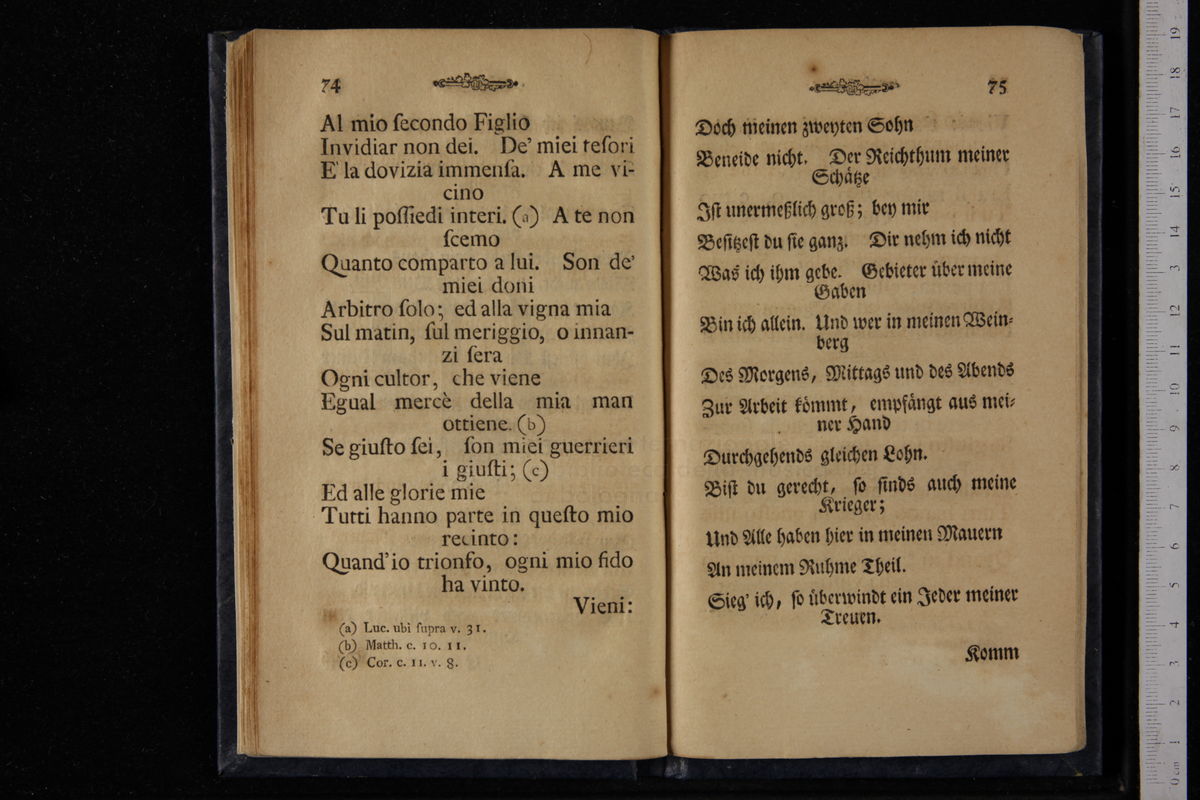 74
Al mio ſecondo Figlio
Invidiar non dei. De' miei teſori
E' la dovizia immenſa. A me vi-
cino
Tu li poſſiedi interi. (a) A te non
ſcemo
Quanto comparto a lui. Son de'
miei doni
Arbitro ſolo; ed alla vigna mia
Sul matin, ſul meriggio, o innan-
zi ſera
Ogni cultor, che viene
Egual mercè della mia man
ottiene. (b)
Se giuſto ſei, ſon miei guerrieri
i giuſti; (c)
Ed alle glorie mie
Tutti hanno parte in queſto mio
recinto:
Quand' io trionfo, ogni mio fido
ha vinto.
Vieni:
(a) Luc. ubi ſupra v. 31.
(b) Matth. c. 10. 11.
(c) Cor. c. 11. v. 8.
75
Doch meinen zweyten Sohn
Beneide nicht. Der Reichthum meiner
Schätze
Iſt unermeßlich groß; bey mir
Beſitzeſt du ſie ganz. Dir nehm ich nicht
Was ich ihm gebe. Gebieter über meine
Gaben
Bin ich allein. Und wer in meinen Wein-
berg
Des Morgens, Mittags und des Abends
Zur Arbeit kömmt, empfängt aus mei-
ner Hand
Durchgehends gleichen Lohn.
Biſt du gerecht, ſo ſinds auch meine
Krieger;
Und Alle haben hier in meinen Mauern
An meinem Ruhme Theil.
Sieg' ich, ſo überwindt ein Jeder meiner
Treuen.
Komm
0 cm 1 2 3 4 5 6 7 8 9 10 11 12 13 14 15 16 17 18 19